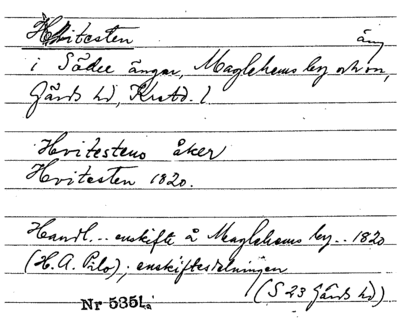 Hvitesten äng
i Södre ängar, Maglehems by och sn,
Gärds hd, Krstd. l
Hvitestens åker
Hvitesten 1820.
Handl... enskifte å Maglehems by.. 1820
(H. A. Pilo); enskiftesdelningen
(S 23 Gärds hd)
Nr 535La